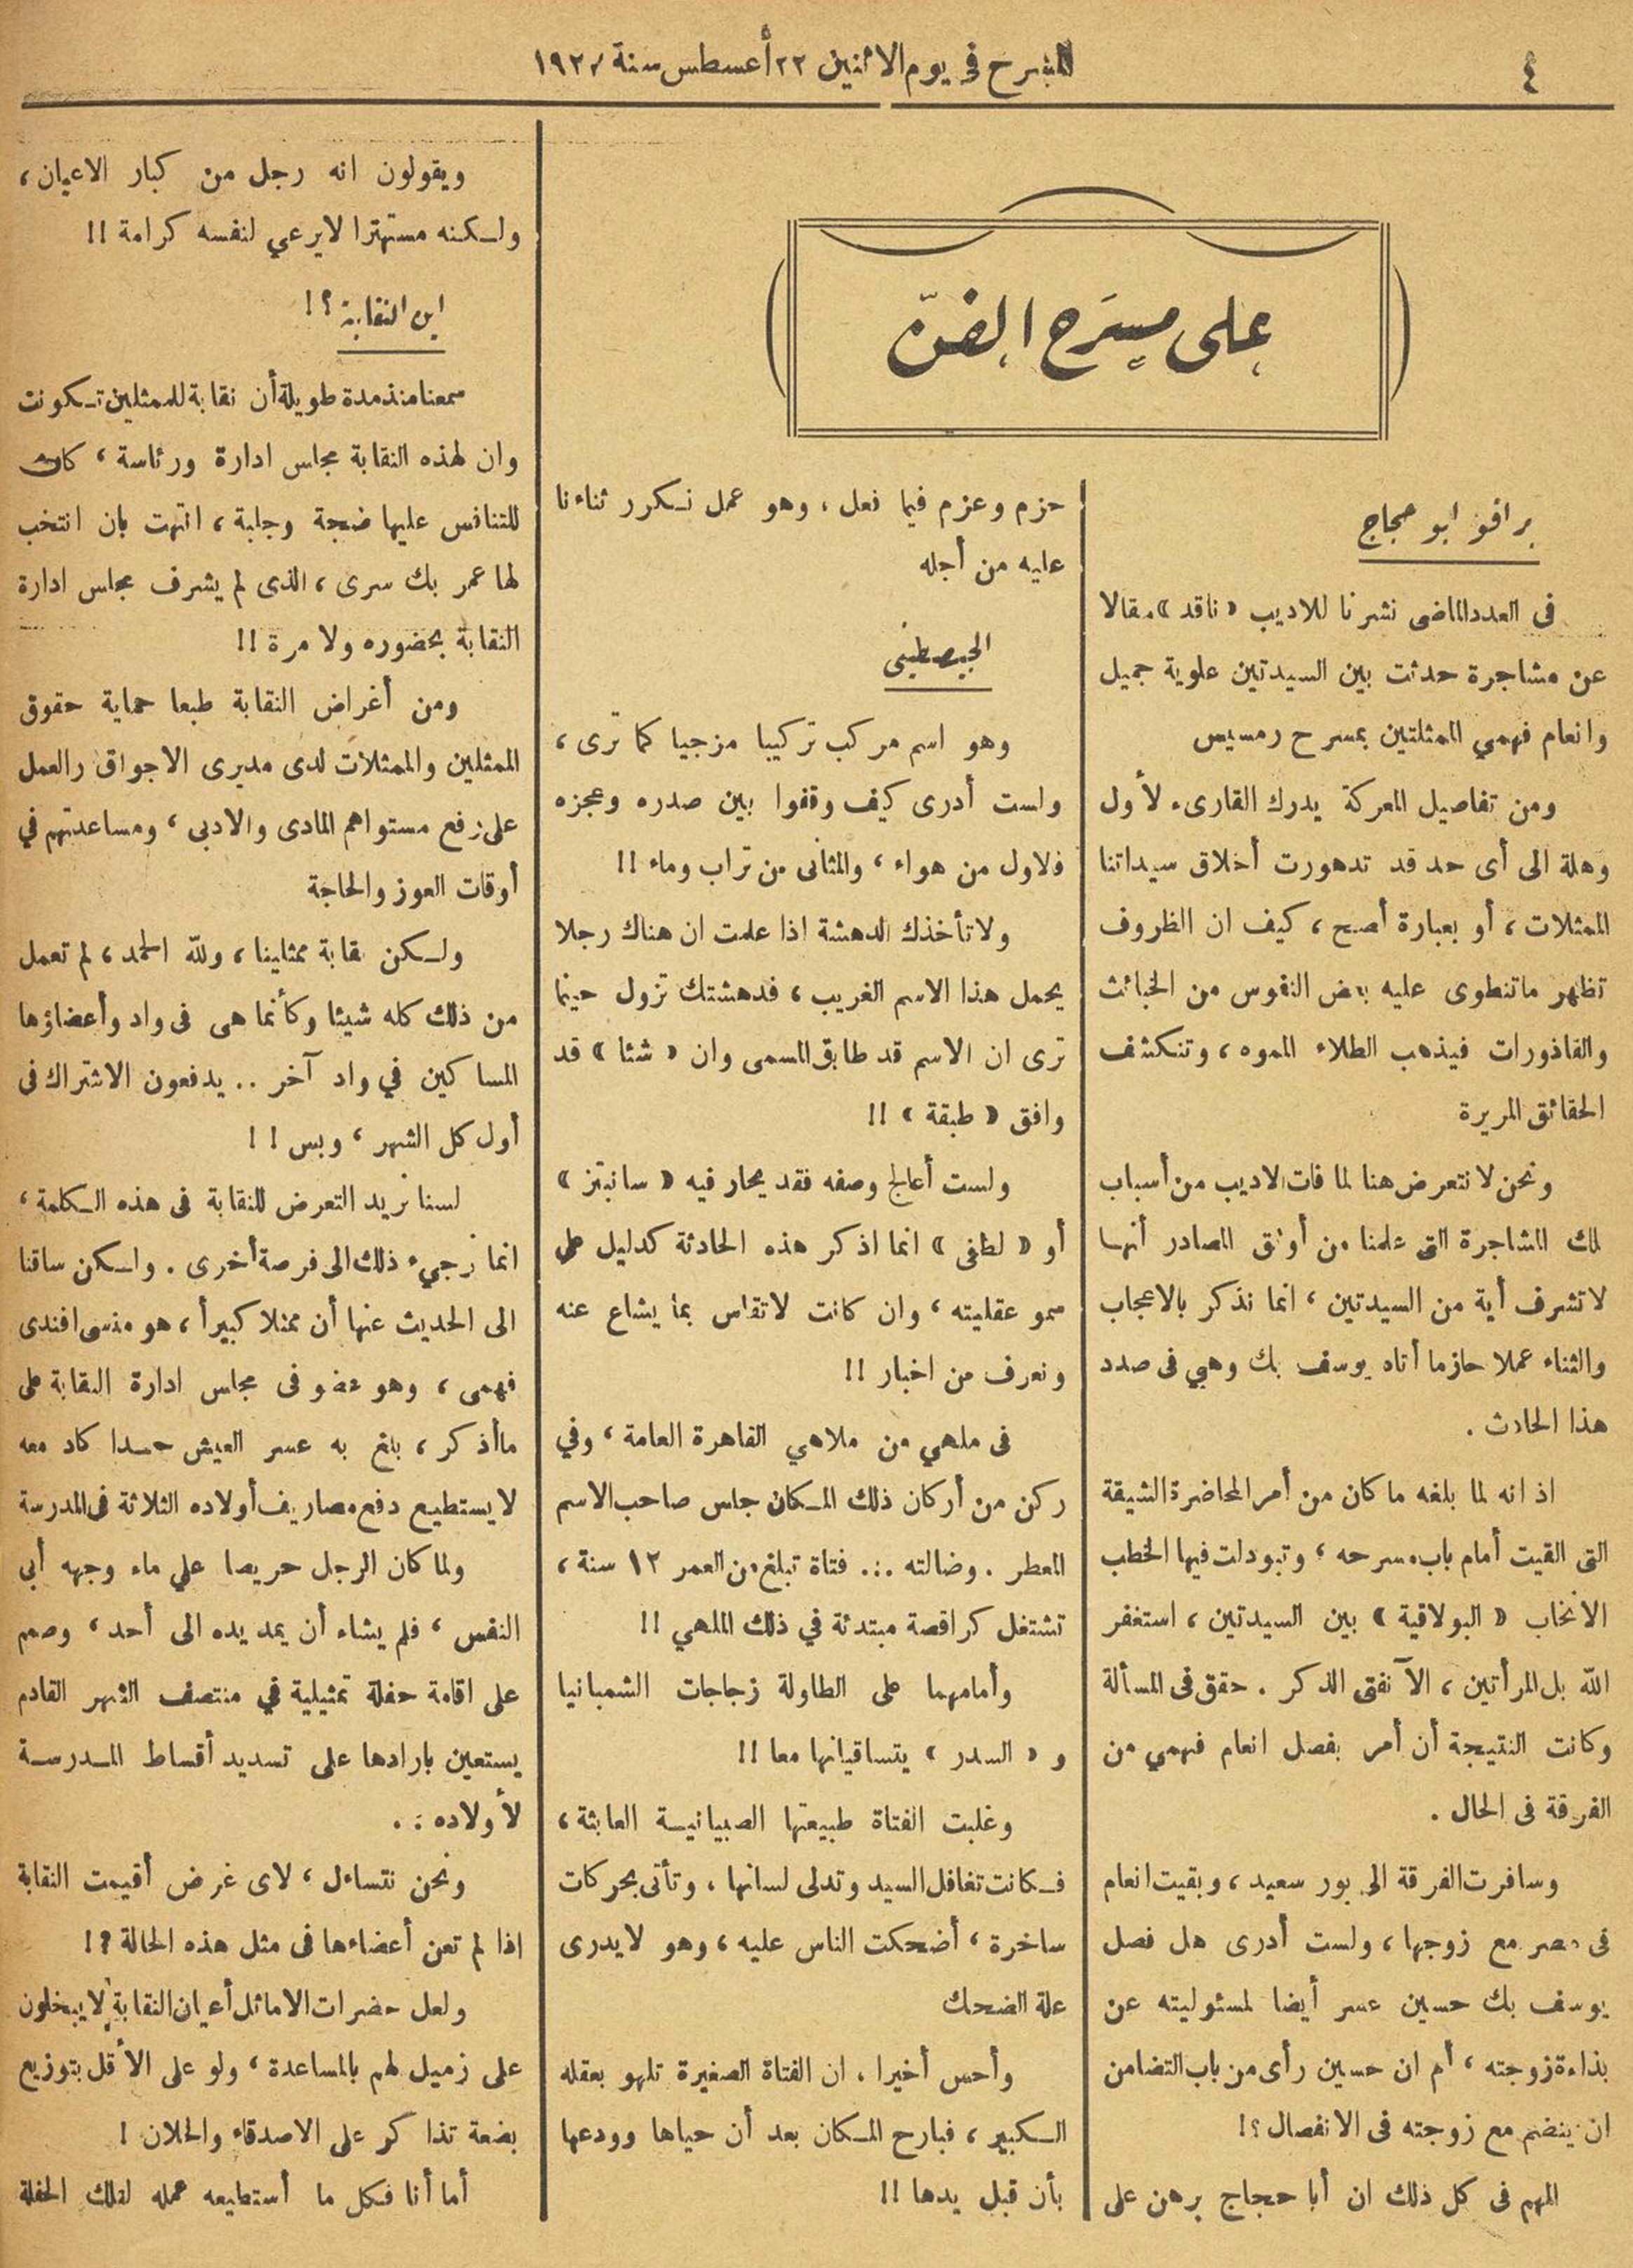 ٤
المسرح في يوم الاثنين ٢٢ أغسطس سنة ١٩٢٧
على مسرح الفن
برافو ابو حجاج
فى العدد الماضى نشرنا للاديب «ناقد» مقالا
عن مشاجرة حدثت بين السيدتين علوية جميل
وانعام فهمي الممثلتين بمسرح رمسيس
ومن تفاصيل المعركة يدرك القارىء لأول
وهلة الى أى حد قد تدهورت أخلاق سيداتنا
الممثلات، أو بعبارة أصح، كيف ان الظروف
تظهر ماتنطوى عليه بعض النفوس من الخبائث
والقاذورات فيذهب الطلاء المموه، وتنكشف
الحقائق المريرة
ونحن لا نتعرض هنا لما فات الاديب من أسباب
لمك المشاجرة التى علمنا من أوثق المصادر أنها
لا تشرف أية من السيدتين، انما نذكر بالاعجاب
والثناء عملا حازما أتاه يوسف بك وهبي فى صدد
هذا الحادث.
اذ انه لما بلغه ما كان من أمر المحاضرة الشيقة
التى القيت أمام باب مسرحه، وتبودلت فيها الخطب
الانخاب «البولاقية» بين السيدتين، استغفر
الله بل المرأتين، الآنفتى الذكر. حقق فى المسألة
وكانت النتيجة أن أمر بفصل انعام فهمي من
الفرقة فى الحال.
وسافرت الفرقة الى بور سعيد، وبقيت انعام
فى مصر مع زوجها، ولست أدرى هل فصل
يوسف بك حسين عسر أيضا لمسئوليته عن
بذاءة زوجته، أم ان حسين رأى من باب التضامن
ان ينضم مع زوجته فى الانفصال؟!
المهم فى كل ذلك ان أبا حجاج برهن على
حزم وعزم فيما فعل، وهو عمل نكرر ثناءنا
عليه من أجله
الجيصطيني
وهو اسم مركب تركيبا مزجيا كما ترى،
ولست أدرى كيف وقفوا بين صدره وعجزه
فلاول من هواء، والثانى من تراب وماء!!
ولا تأخذك الدهشة اذا علمت ان هناك رجلا
يحمل هذا الاسم الغريب، فدهشتك تزول حينما
ترى ان الاسم قد طابق المسمى وان «شئا» قد
وافق «طبقة»!!
ولست أعالج وصفه فقد يحار فيه «سانبتز»
أو «لطفى» انما اذكر هذه الحادثة كدليل على
سمو عقليته، وان كانت لا تقاس بما يشاع عنه
ونعرف من اخبار!!
فى ملهي من ملاهي القاهرة العامة، وفي
ركن من أركان ذلك المكان جلس صاحب الاسم
المعطر. وضالته .:. فتاة تبلغ من العمر ١٢ سنة،
تشتغل كراقصة مبتدئة في ذلك الملهي!!
وأمامهما على الطاولة زجاجات الشمبانيا
و «السدر» يتساقيانها معا!!
وغلبت الفتاة طبيعتها الصبيانية العابثة،
فكانت تغافل السيد وتدلى لسانها، وتأتى بحركات
ساخرة، أضحكت الناس عليه، وهو لا يدرى
علة الضحك
وأحس أخيرا، ان الفتاة الصغيرة تلهو بعقله
الكبير، فبارح المكان بعد أن حياها وودعها
بأن قبل يدها!!
ويقولون انه رجل من كبار الاعيان،
ولكنه مستهترا لا يرعي لنفسه كرامة!!
اين النقابة؟!
سمعنا منذ مدة طويلة أن نقابة للممثلين تكونت
وان لهذه النقابة مجلس ادارة ورئاسة، كان
للتنافس عليها ضجة وجلبة، انتهت بان انتخب
لها عمر بك سرى، الذى لم يشرف مجلس ادارة
النقابة بحضوره ولا مرة!!
ومن أغراض النقابة طبعا حماية حقوق
الممثلين والممثلات لدى مديرى الاجواق والعمل
على رفع مستواهم المادى والادبى، ومساعدتهم في
أوقات العوز والحاجة
ولكن نقابة ممثلينا، ولله الحمد، لم تعمل
من ذلك كله شيئا وكأنما هى فى واد وأعضاؤها
المساكين في واد آخر .. يدفعون الاشتراك فى
أول كل الشهر، وبس!!
لسنا نريد التعرض للنقابة فى هذه الكلمة،
انما نرجيء ذلك الى فرصة أخرى. ولكن ساقنا
الى الحديث عنها أن ممثلا كبيرأ، هو منسى افندى
فهمى، وهو عضو فى مجلس ادارة النقابة على
ما أذكر، بلغ به عسر العيش حدا كاد معه
لا يستطيع دفع مصاريف أولاده الثلاثة فى المدرسة
ولما كان الرجل حريصا علي ماء وجهه أبي
النفس، فلم يشاء أن يمد يده الى أحد، وصمم
على اقامة حفلة تمثيلية في منتصف الشهر القادم
يستعين بارادها على تسديد أقساط المدرسة
لأولاده..
ونحن نتساءل، لاى غرض أقيمت النقابة
اذا لم تعن أعضاءها فى مثل هذه الحالة؟!
ولعل حضرات الاماثل أعيان النقابة لا يبخلون
على زميل لهم بالمساعدة، ولو على الأقل بتوزيع
بضعة تذاكر على الاصدقاء والخلان!
أما أنا فكل ما أستطيعه عمله لتلك الحفلة